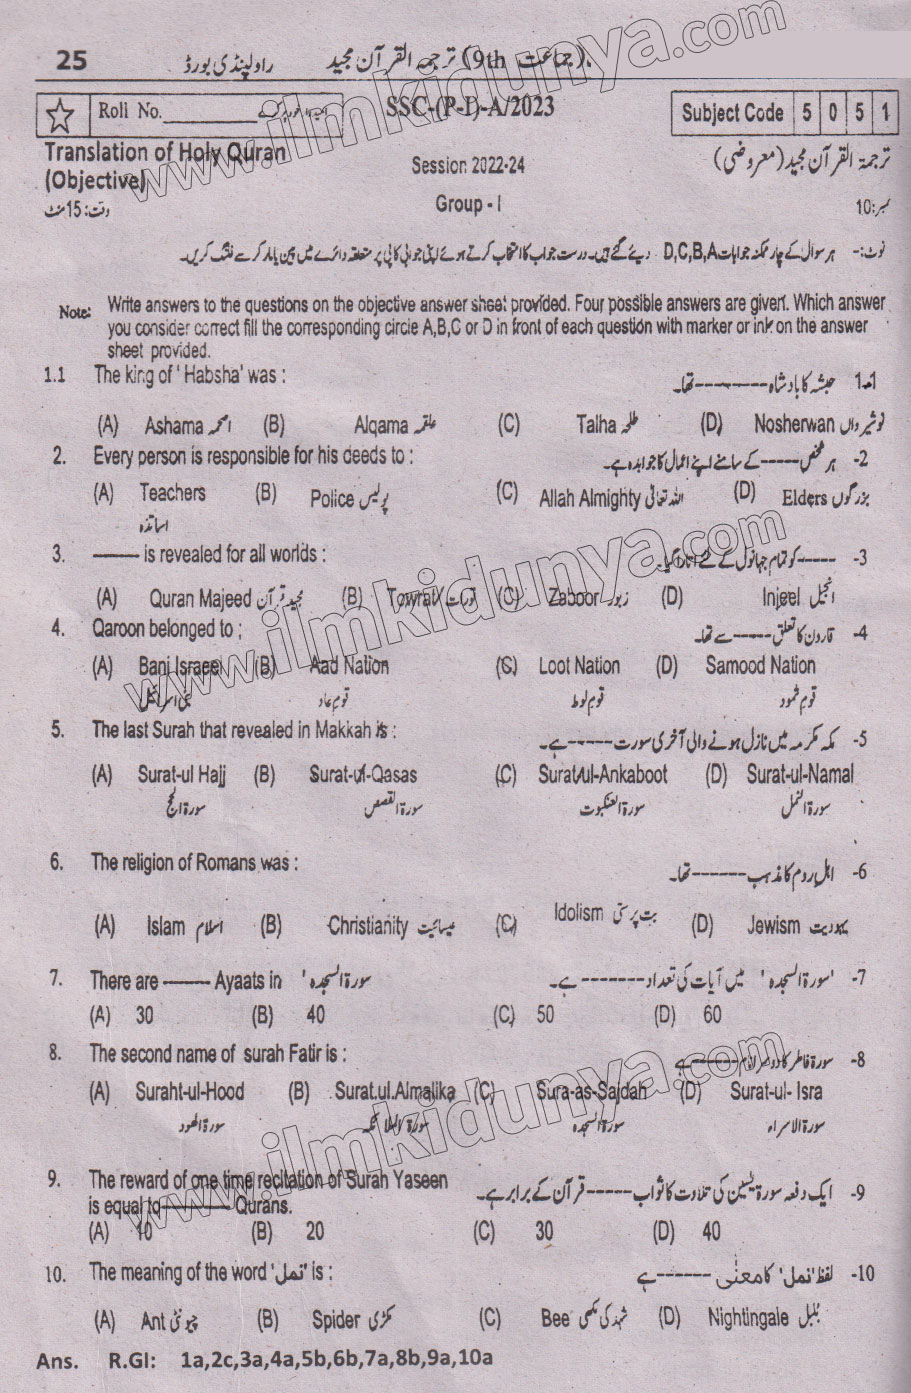 25 راولپنڈی بورڈ ترجمۃ القرآن مجید (9th جماعت)
Roll No.__________ SSC-(P-I)-A/2023 Subject Code 5 0 5 1
Translation of Holy Quran Session 2022-24 ترجمۃ القرآن مجید (معروضی)
(Objective)
وقت: 15 منٹ Group - I نمبر: 10
نوٹ:- ہر سوال کے چار ممکنہ جوابات D,C,B,A دیئے گئے ہیں۔ درست جواب کا انتخاب کرتے ہوئے اپنی جوابی کاپی پر متعلقہ دائرے میں پین یا مارکر سے فلنگ کریں۔
Note: Write answers to the questions on the objective answer sheet provided. Four possible answers are given. Which answer
you consider correct fill the corresponding circle A,B,C or D in front of each question with marker or ink on the answer
sheet provided.
1.1 The king of ' Habsha' was : 1-1 حبشہ کا بادشاہ -------- تھا۔
(A) Ashama اصحمہ (B) Alqama علقمہ (C) Talha طلحہ (D) Nosherwan نوشیرواں
2. Every person is responsible for his deeds to : 2- ہر شخص ----- کے سامنے اپنے اعمال کا جوابدہ ہے۔
(A) Teachers (B) Police پولیس (C) Allah Almighty اللہ تعالیٰ (D) Elders بزرگوں
اساتذہ
3. ------ is revealed for all worlds : 3- ----- کو تمام جہانوں کے لئے اتارا گیا۔
(A) Quran Majeed قرآن مجید (B) Towrat تورات (C) Zaboor زبور (D) Injeel انجیل
4. Qaroon belonged to ; 4- قارون کا تعلق ----- سے تھا۔
(A) Bani Israeel (B) Aad Nation (C) Loot Nation (D) Samood Nation
بنی اسرائیل قوم عاد قوم لوط قوم ثمود
5. The last Surah that revealed in Makkah is : 5- مکہ مکرمہ میں نازل ہونے والی آخری سورت ----- ہے۔
(A) Surat-ul Hajj (B) Surat-ul-Qasas (C) Surat-ul-Ankaboot (D) Surat-ul-Namal
سورۃ الحج سورۃ القصص سورۃ العنکبوت سورۃ النمل
6. The religion of Romans was : 6- اہل روم کا مذہب ------ تھا۔
(A) Islam اسلام (B) Christianity عیسائیت (C) Idolism بت پرستی (D) Jewism یہودیت
7. There are ------ Ayaats in سورۃ السجدہ ' 7- 'سورۃ السجدہ ' میں آیات کی تعداد -------- ہے۔
(A) 30 (B) 40 (C) 50 (D) 60
8. The second name of surah Fatir is : 8- سورۃ فاطر کا دوسرا نام ------ ہے
(A) Suraht-ul-Hood (B) Surat.ul.Almalika (C) Sura-as-Sajdah (D) Surat-ul- Isra
سورۃ الھود سورۃ الملائکہ سورۃ السجدہ سورۃ الاسراء
9. The reward of one time recitation of Surah Yaseen 9- ایک دفعہ سورۃ یٰسین کی تلاوت کا ثواب ----- قرآن کے برابر ہے۔
is equal to-------- Qurans.
(A) 10 (B) 20 (C) 30 (D) 40
10. The meaning of the word 'نمل' is : 10- لفظ 'نمل' کا معنٰی ------ ہے
(A) Ant چیونٹی (B) Spider مکڑی (C) Bee شہد کی مکھی (D) Nightingale بلبل
Ans. R.GI: 1a,2c,3a,4a,5b,6b,7a,8b,9a,10a
www.ilmkidunya.com
www.ilmkidunya.com
www.ilmkidunya.com